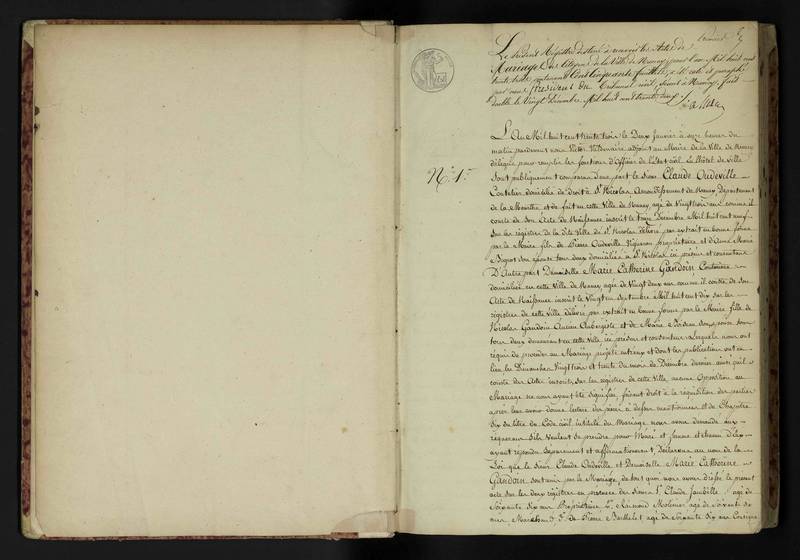 Le présent Registre destiné à recevoir les Actes de
Mariage des Citoyens de la Ville de Nancy, pour l'an Mil huit cent
trente trois, contenant Cent cinquante feuillets, a été coté et paraphé
par nous Président du Tribunal civil, séant à Nancy, fait
double le Vingt Décembre Mil huit cent trente deux.
L'An Mil huit cent trente trois le Deux Janvier à onze heures du
matin pardevant nous Victor adjoint au Maire de la Ville de Nancy
délégué pour remplir les fonctions d'Officier de l'état civil à l'hôtel de Ville
N° 1.
sont publiquement comparus D'une part le Sieur Claude Oudeville
Coutelier domicilié de droit à St Nicolas Arrondissement de Nancy Département
de la Meurthe et de fait en cette Ville de Nancy, âgé de Vingt trois ans comme il
conste de son Acte de Naissance inscrit le Décembre Mil huit cent neuf
sur les registres de la dite Ville de St Nicolas délivré par extrait en bonne forme
par le Maire fils de Pierre Oudeville Vigneron propriétaire et d'Anne Marie
son épouse tous deux domiciliés à St Nicolas ci présens et consentans
D'Autre part Demoiselle Marie Catherine Gaudoin Couturière
domiciliée en cette Ville de Nancy âgée de Vingt deux ans comme il conste de son
Acte de Naissance inscrit le Vingt un Septembre Mil huit cent dix sur les
registres de cette Ville délivré par extrait en bonne forme par le Maire fille de
Nicolas Gaudoin Ancien Aubergiste et de Marie son épouse
tous deux demeurant en cette Ville ici présens et consentans Lesquels nous ont
requis de procéder au Mariage projeté entr'eux et dont les publications ont eu
lieu les Dimanches Vingt trois et trente du mois de Décembre dernier ainsi qu'il
conste des Actes inscrits sur les registres de cette Ville, aucune Opposition au
Mariage ne nous ayant été signifiée, faisant droit à la réquisition des parties
après leur avoir donné lecture des pièces ci dessus mentionnées et du Chapitre
Six du titre du Code civil intitulé du Mariage nous avons demandé aux
requérans s'ils veulent se prendre pour Mari et femme et chacun d'eux
ayant répondu séparément et affirmativement, déclarons au nom de la
Loi que le Sieur Claude Oudeville et Demoiselle Marie Catherine
Gaudoin sont unis par le Mariage, de tout quoi nous avons dressé le présent
acte sur les deux registres en présence des Sieurs 1° Claude âgé de
Soixante dix ans Propriétaire 2° âgé de Soixante
ans, 3° de Pierre Barthelet âgé de Soixante dix ans